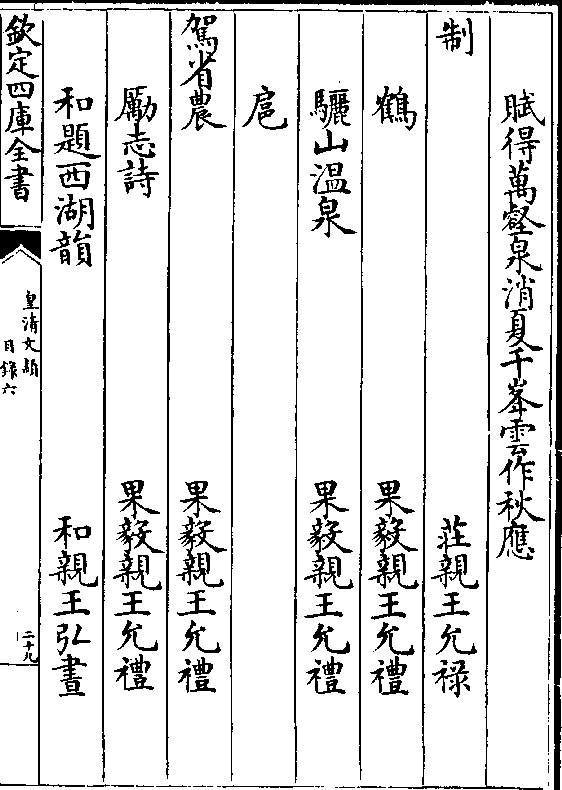 賦得萬壑泉消夏千峯雲作秋應
制 莊親王允祿
鶴 果毅親王允禮
驪山溫泉 果毅親王允禮
扈
駕省農 果毅親王允禮
勵志詩 果毅親王允禮
和題西湖韻 和親王弘晝
欽定四庫全書
皇清文穎
目錄六
二十九